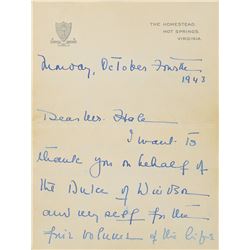 THE HOMESTEAD.
HOT SPRINGS.
VIRGINIA.
Monday, October Fourth
1943
Dear Mr. Hale
I want to
thank you on behalf of
the Duke of Windsor
and my self for the
four volumes of the life